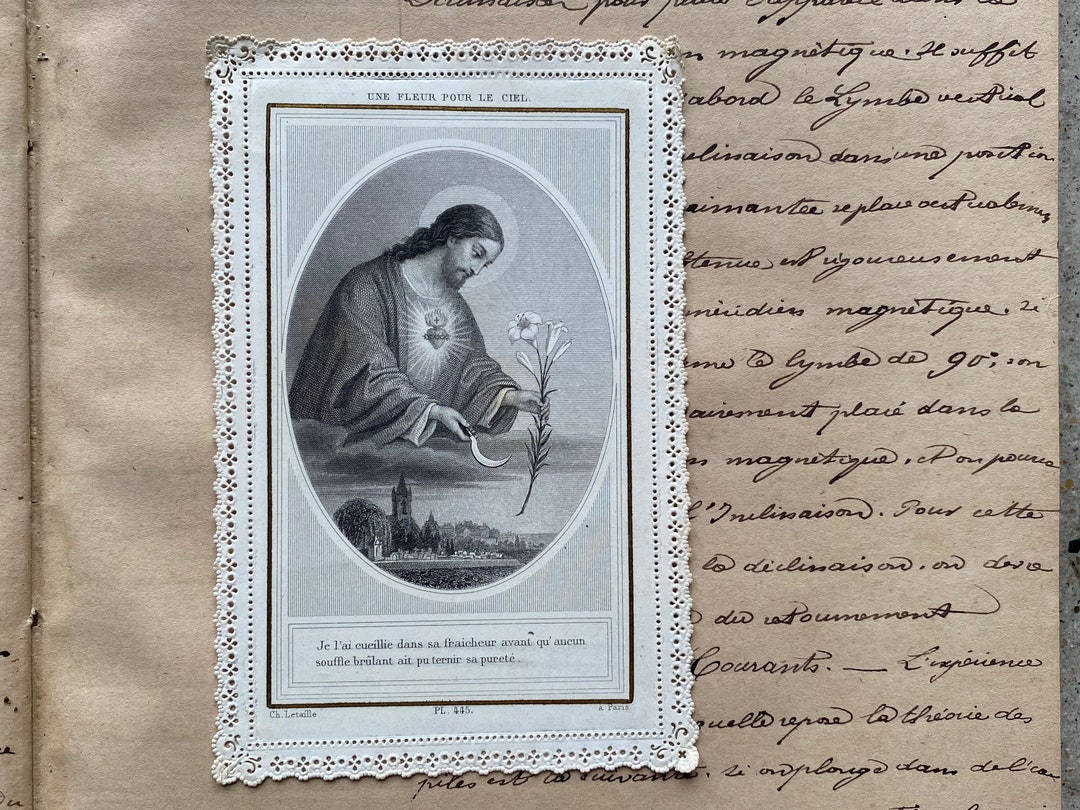 UNE FLEUR POUR LE CIEL.
Je l'ai cueillie dans sa fraicheur avant qu'aucun
souffle brûlant ait pu ternir sa pureté.
Ch. Letaille
PL. 445.
à Paris
pour
dans le
magnétique. Il suffit
abord le Lymbe vertical
dans une position
aimantée se place
est rigoureusement
magnétique. Si
le lymbe de 90°, on
airement placé dans le
magnétique, et on pourra
l'Inclinaison. Pour cette
la déclinaison. on devra
du retournement
Courants. — L'expérience
repose la théorie des
piles est la suivante. Si on plonge dans de l'eau